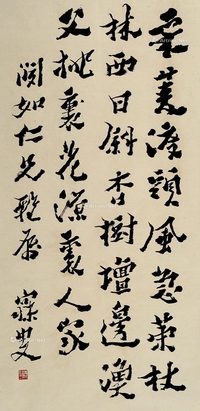 采菱渡頭風急策杖
林西日斜杏樹壇邊漁
父桃裏花源裏人家
如仁兄雅屬
寐叟